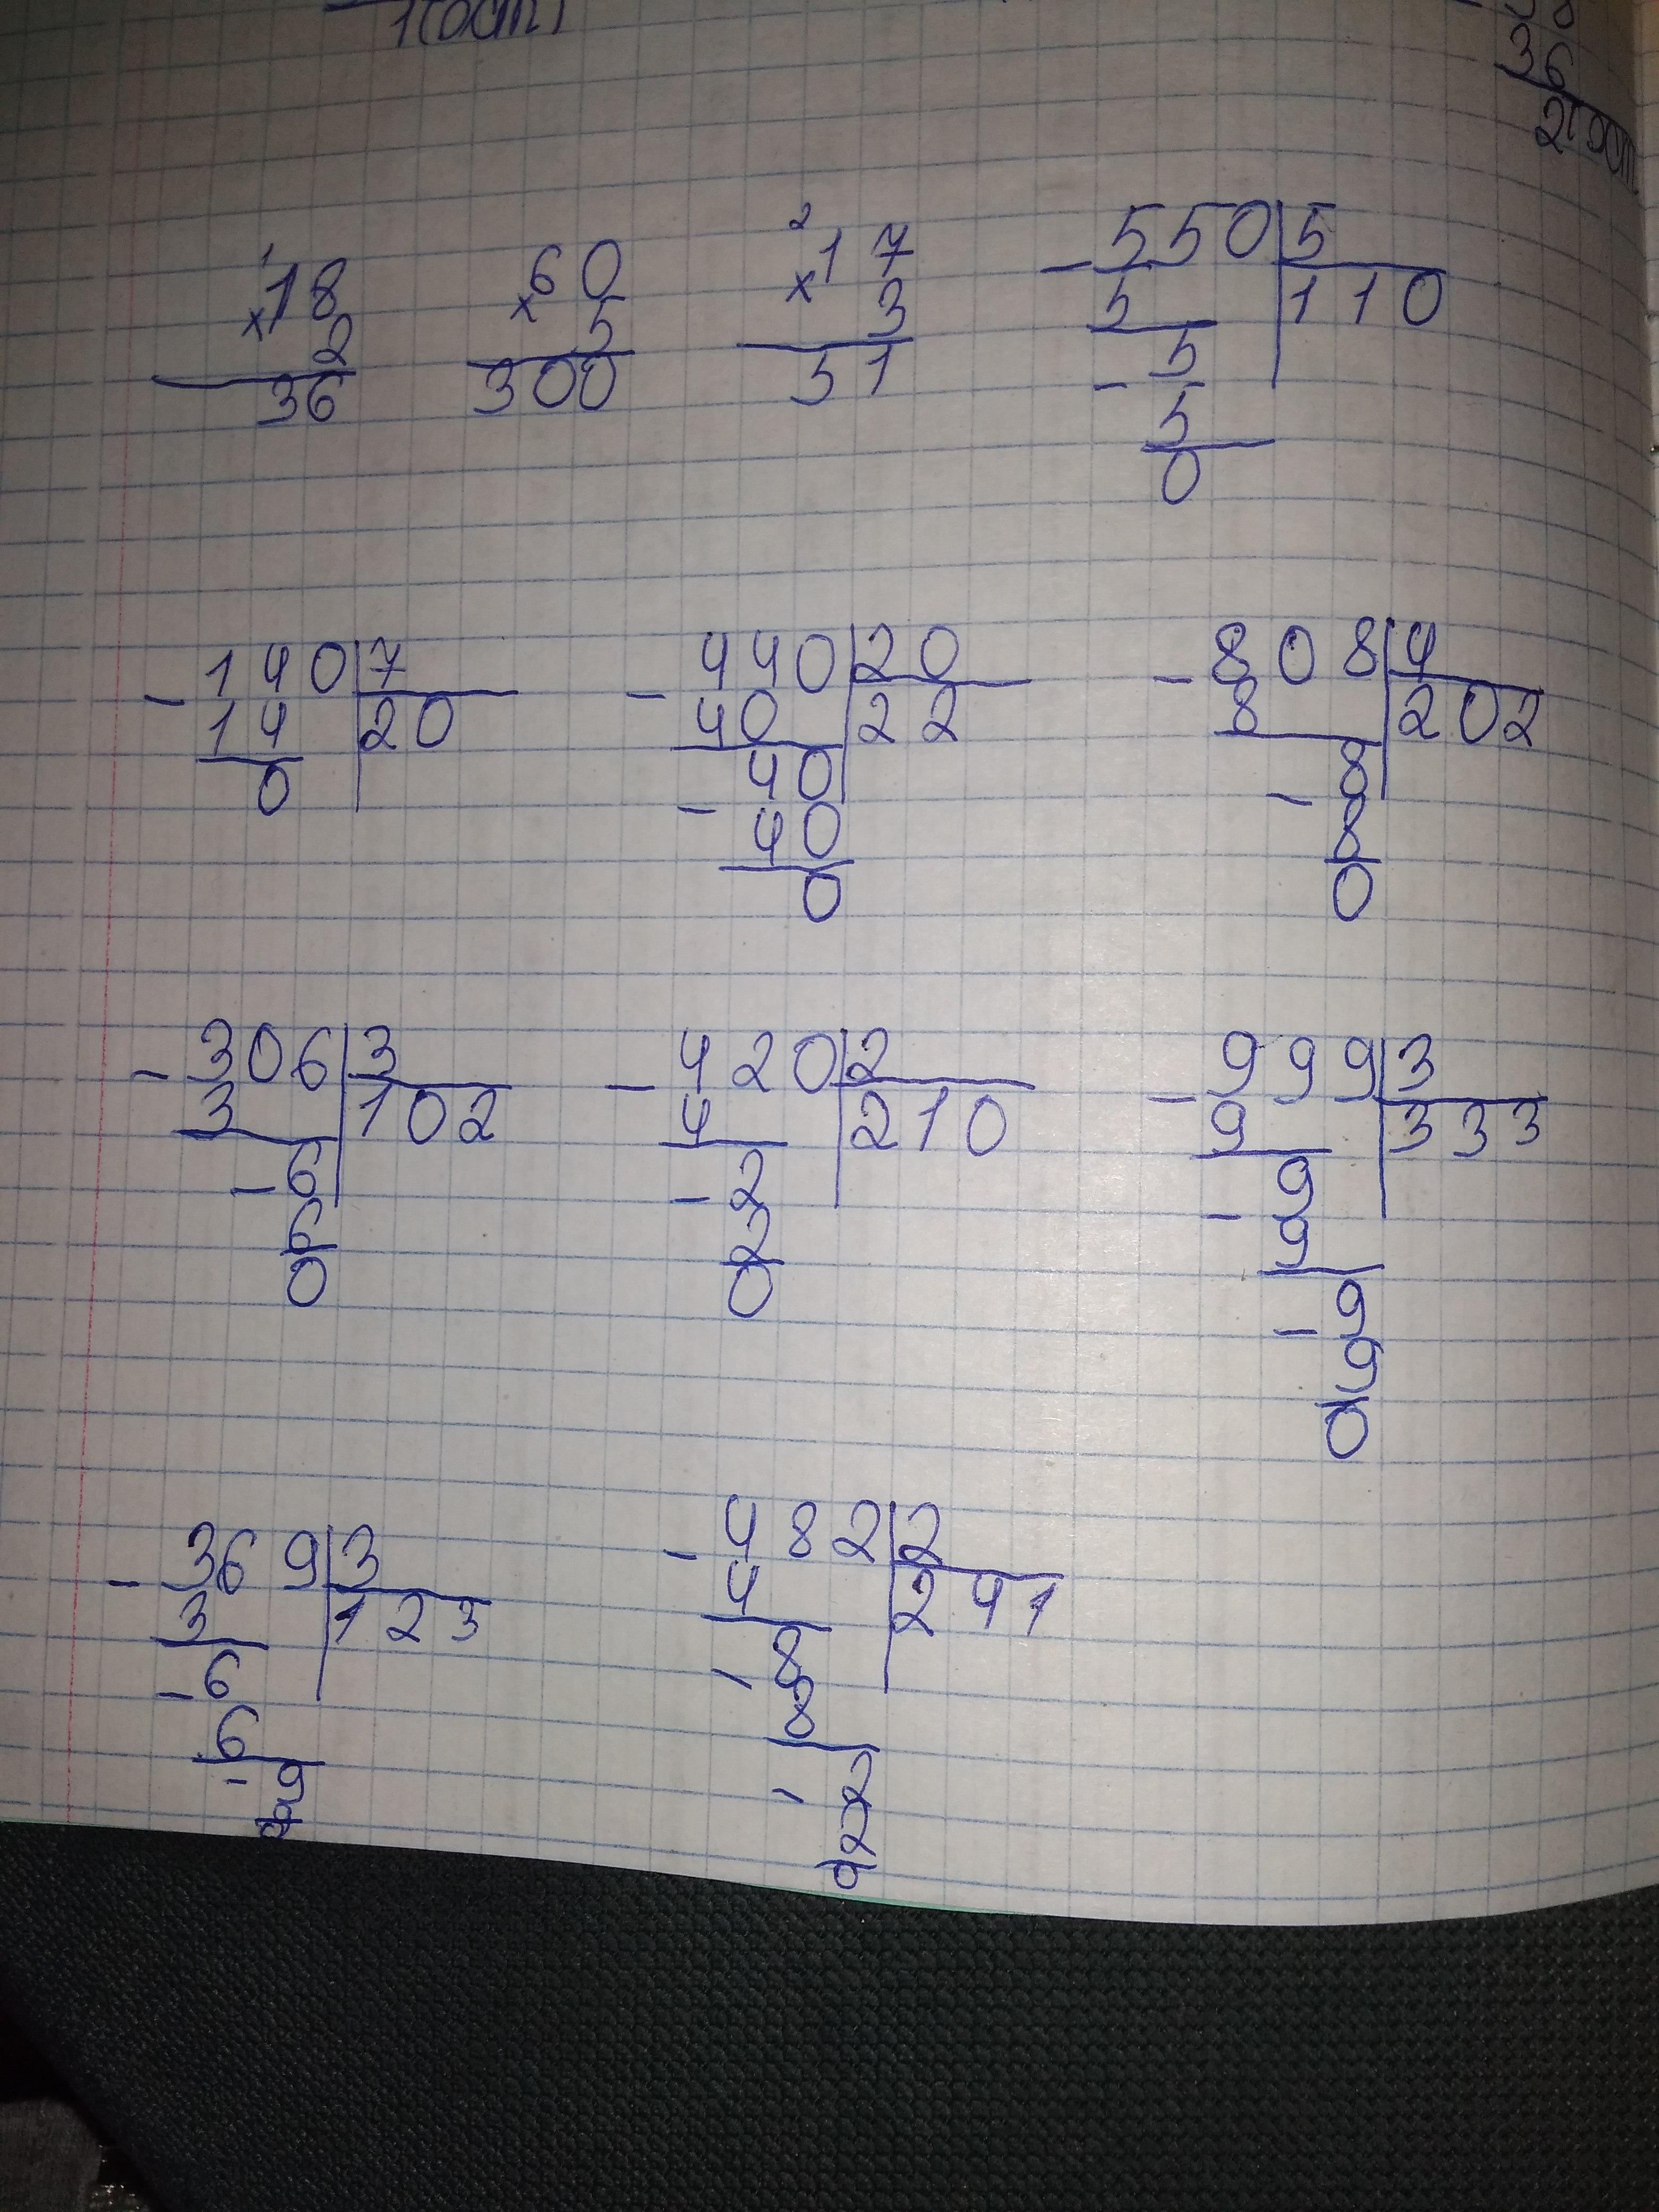 1(ост)
36
2(ост
1 2
18 60 17 550 5
× 2 × 5 × 3 - 5 110
36 300 51 5
- 5
0
- 140 7 - 440 20 - 808 4
14 20 40 22 8 202
0 40 8
- 40 - 8
0 0
- 306 3 - 420 2 - 999 3
3 102 4 210 9 333
- 6 - 2 - 9
6 2 9
0 0 - 9
9
0
- 369 3 - 482 2
3 123 4 241
- 6 - 8
6 8
- 9 - 2
9 2
0 0